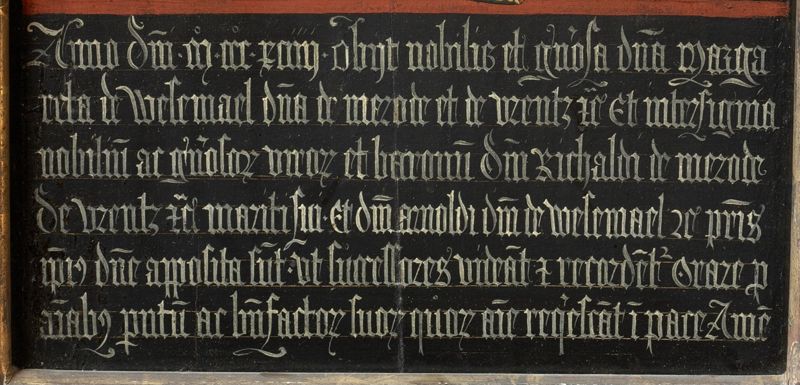 Anno dm̄ . m̊ . cc̊ . xciiij . Obijt nobilis et gn̄osa dn̄a Marga
reta de Wesemael dn̄a de merode et de vrentz zc̄ Et intersignia
nobiliū ac gn̄osoꝝ viroꝝ et baronū dm̄ Richaldi de merode
De vrentz zc̄ mariti sui . Et dm̄ arnoldi dm̄ de wesemael zc̄ pr̄is
ip̄iꝰ dn̄e apposita sūt . vt successores videāt ⁊ recordēt² Orare ꝑ
aīabꝰ pn̄tū ac bn̄factoꝝ suoꝝ quoꝝ aīe reqͥescāt ī pace Amē